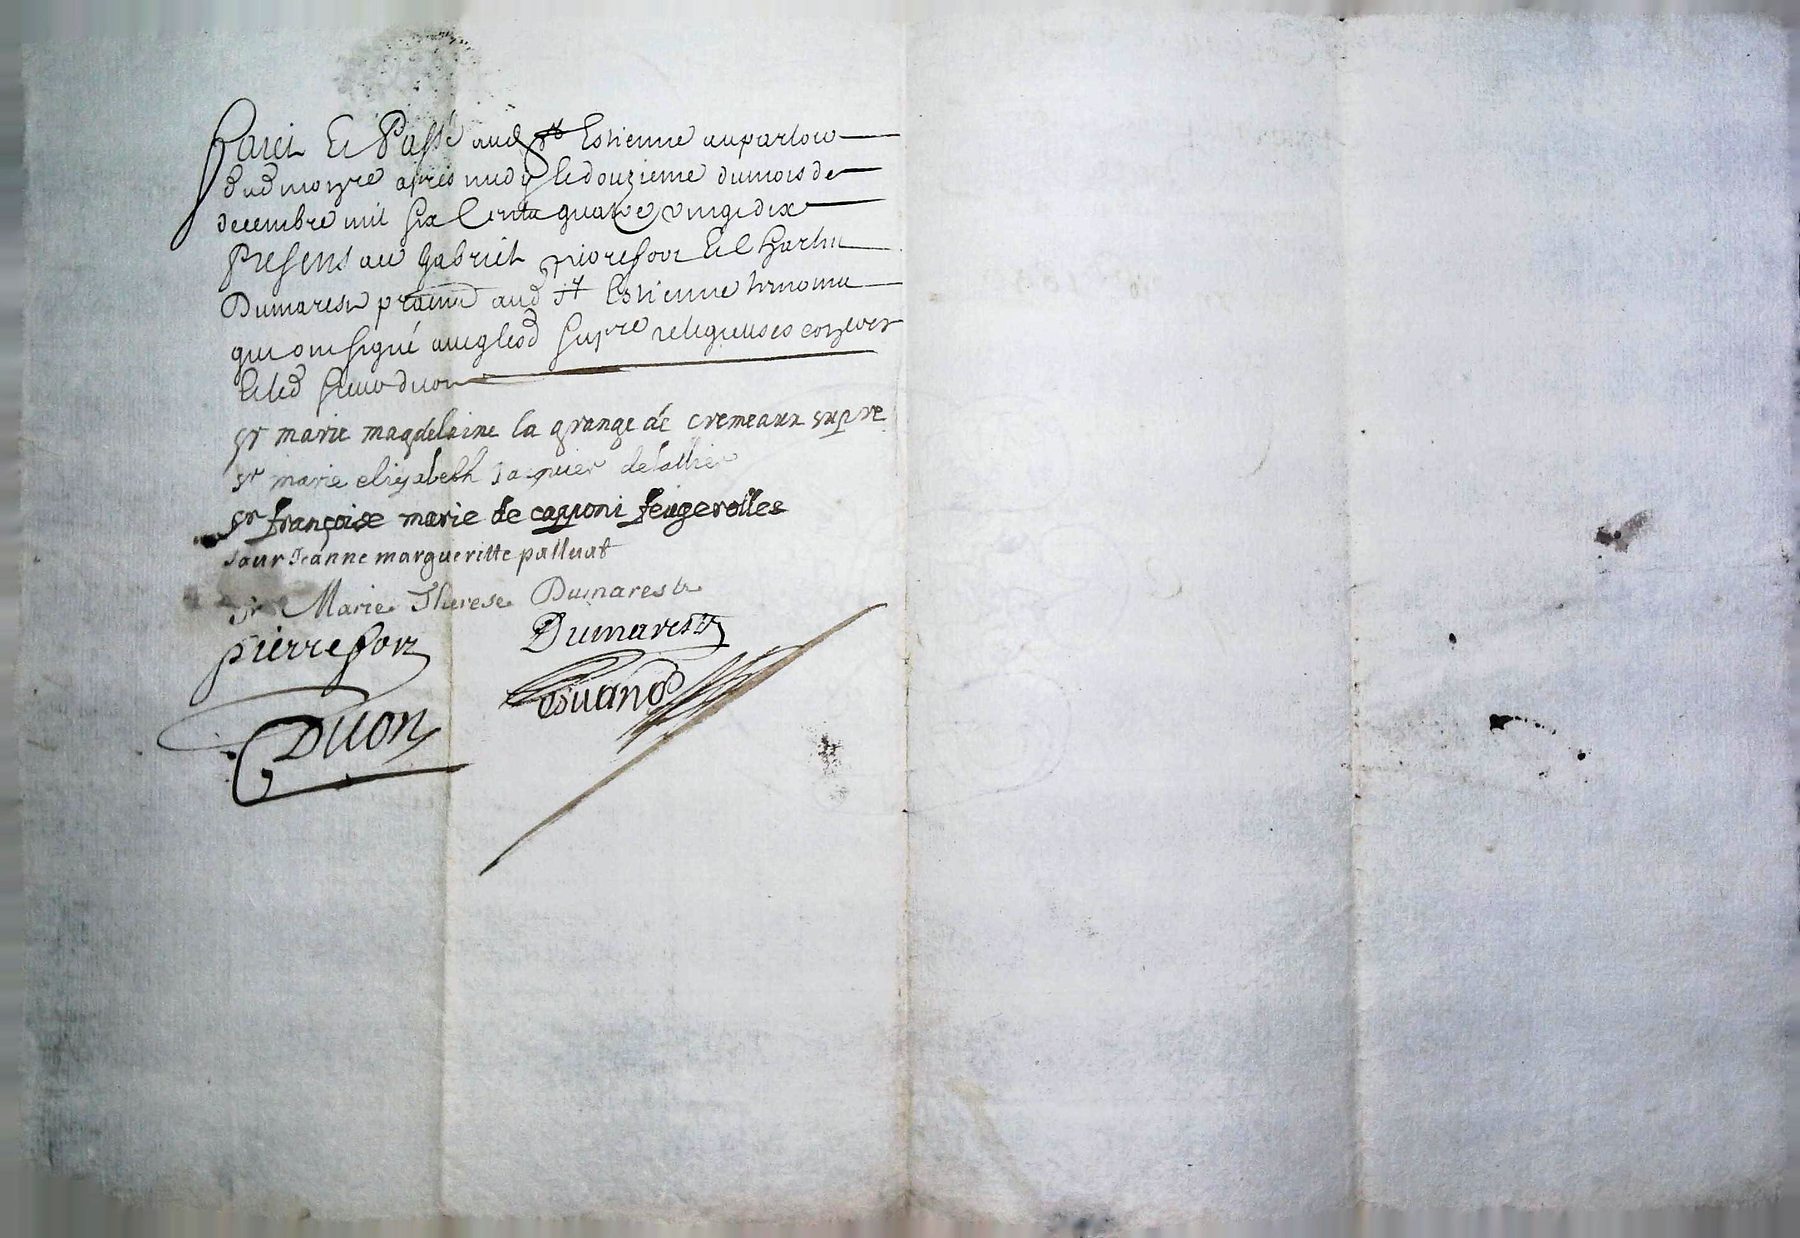 Faict Et Passé aud St Estienne au parloir
dud mon̄re apres midy le douzieme du mois de
decembre mil six Cents quatre vingt dix
Presens au Gabriel pierrefort Et C
Dumarest praticien aud St Estienne
qui ont signé avec lesd supre religieuses
Et led sieur duon
sr marie magdelaine la grange de cremeaux supre
sr marie elizabeth Jaquier
sr françoise marie de capponi feugerolles
sœur Jeanne margueritte palluat
sr Marie Therese Dumarest
pierrefort Dumarest
Duon